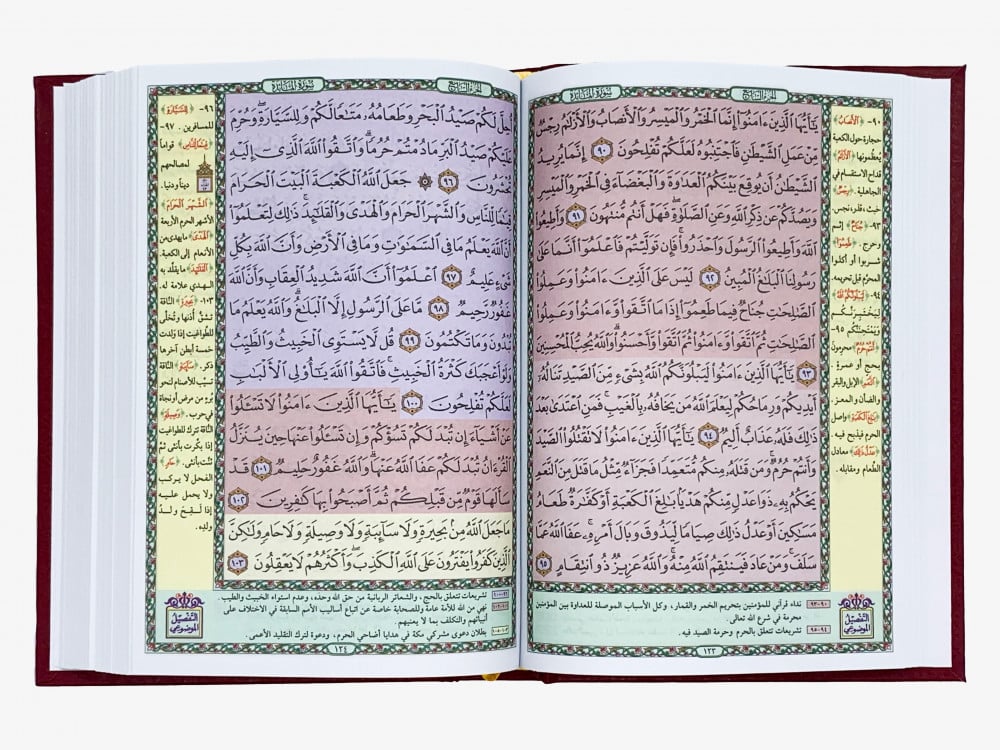 سورة المائدة
الجزء السابع
يَـٰٓأَيُّهَا ٱلَّذِينَ ءَامَنُوٓا۟ إِنَّمَا ٱلْخَمْرُ وَٱلْمَيْسِرُ وَٱلْأَنصَابُ وَٱلْأَزْلَـٰمُ رِجْسٌ
مِّنْ عَمَلِ ٱلشَّيْطَـٰنِ فَٱجْتَنِبُوهُ لَعَلَّكُمْ تُفْلِحُونَ ٩٠ إِنَّمَا يُرِيدُ
ٱلشَّيْطَـٰنُ أَن يُوقِعَ بَيْنَكُمُ ٱلْعَدَٰوَةَ وَٱلْبَغْضَآءَ فِى ٱلْخَمْرِ وَٱلْمَيْسِرِ
وَيَصُدَّكُمْ عَن ذِكْرِ ٱللَّهِ وَعَنِ ٱلصَّلَوٰةِ ۖ فَهَلْ أَنتُم مُّنتَهُونَ ٩١ وَأَطِيعُوا۟
ٱللَّهَ وَأَطِيعُوا۟ ٱلرَّسُولَ وَٱحْذَرُوا۟ ۚ فَإِن تَوَلَّيْتُمْ فَٱعْلَمُوٓا۟ أَنَّمَا عَلَىٰ
رَسُولِنَا ٱلْبَلَـٰغُ ٱلْمُبِينُ ٩٢ لَيْسَ عَلَى ٱلَّذِينَ ءَامَنُوا۟ وَعَمِلُوا۟
ٱلصَّـٰلِحَـٰتِ جُنَاحٌ فِيمَا طَعِمُوٓا۟ إِذَا مَا ٱتَّقَوا۟ وَّءَامَنُوا۟ وَعَمِلُوا۟
ٱلصَّـٰلِحَـٰتِ ثُمَّ ٱتَّقَوا۟ وَّءَامَنُوا۟ ثُمَّ ٱتَّقَوا۟ وَّأَحْسَنُوا۟ ۗ وَٱللَّهُ يُحِبُّ ٱلْمُحْسِنِينَ
٩٣ يَـٰٓأَيُّهَا ٱلَّذِينَ ءَامَنُوا۟ لَيَبْلُوَنَّكُمُ ٱللَّهُ بِشَىْءٍ مِّنَ ٱلصَّيْدِ تَنَالُهُۥٓ
أَيْدِيكُمْ وَرِمَاحُكُمْ لِيَعْلَمَ ٱللَّهُ مَن يَخَافُهُۥ بِٱلْغَيْبِ ۚ فَمَنِ ٱعْتَدَىٰ بَعْدَ
ذَٰلِكَ فَلَهُۥ عَذَابٌ أَلِيمٌ ٩٤ يَـٰٓأَيُّهَا ٱلَّذِينَ ءَامَنُوا۟ لَا تَقْتُلُوا۟ ٱلصَّيْدَ
وَأَنتُمْ حُرُمٌ ۚ وَمَن قَتَلَهُۥ مِنكُم مُّتَعَمِّدًا فَجَزَآءٌ مِّثْلُ مَا قَتَلَ مِنَ ٱلنَّعَمِ
يَحْكُمُ بِهِۦ ذَوَا عَدْلٍ مِّنكُمْ هَدْيًۢا بَـٰلِغَ ٱلْكَعْبَةِ أَوْ كَفَّـٰرَةٌ طَعَامُ
مَسَـٰكِينَ أَوْ عَدْلُ ذَٰلِكَ صِيَامًا لِّيَذُوقَ وَبَالَ أَمْرِهِۦ ۗ عَفَا ٱللَّهُ عَمَّا
سَلَفَ ۚ وَمَنْ عَادَ فَيَنتَقِمُ ٱللَّهُ مِنْهُ ۗ وَٱللَّهُ عَزِيزٌ ذُو ٱنتِقَامٍ ٩٥
٩٠- ﴿الأنصاب﴾
حجارة حول الكعبة
يعظّمونها ﴿الأزلام﴾
قداح الاستقسام في
الجاهلية. ﴿رجس﴾
خبث، قذر، نجس.
٩٣- ﴿جناح﴾ إثم
وحرج. ﴿طعموا﴾
شربوا أو أكلوا
المحرّم قبل تحريمه.
٩٤- ﴿ليبلونكم الله﴾
ليختبرنّكم
ويمتحننّكم ٩٥-
﴿أنتم حرم﴾ محرمون
بحج أو عمرة.
﴿النعم﴾ الإبل والبقر
والضأن و المعز.
﴿بالغ الكعبة﴾ واصل
الحرم فيذبح فيه.
﴿عدل ذلك﴾ معادل
الطعام ومقابله.
٩٠-٩٣ نداء قرآني للمؤمنين بتحريم الخمر والقمار، وكل الأسباب الموصلة للعداوة بين المؤمنين
محرمة في شرع الله تعالى.
٩٤-٩٥ تشريعات تتعلق بالحرم وحرمة الصيد فيه.
التفصيل
الموضوعي
١٢٣
سورة المائدة
الجزء السابع
أُحِلَّ لَكُمْ صَيْدُ ٱلْبَحْرِ وَطَعَامُهُۥ مَتَـٰعًا لَّكُمْ وَلِلسَّيَّارَةِ ۖ وَحُرِّمَ
عَلَيْكُمْ صَيْدُ ٱلْبَرِّ مَا دُمْتُمْ حُرُمًا ۗ وَٱتَّقُوا۟ ٱللَّهَ ٱلَّذِىٓ إِلَيْهِ
تُحْشَرُونَ ٩٦ ۞ جَعَلَ ٱللَّهُ ٱلْكَعْبَةَ ٱلْبَيْتَ ٱلْحَرَامَ
قِيَـٰمًا لِّلنَّاسِ وَٱلشَّهْرَ ٱلْحَرَامَ وَٱلْهَدْىَ وَٱلْقَلَـٰٓئِدَ ۚ ذَٰلِكَ لِتَعْلَمُوٓا۟
أَنَّ ٱللَّهَ يَعْلَمُ مَا فِى ٱلسَّمَـٰوَٰتِ وَمَا فِى ٱلْأَرْضِ وَأَنَّ ٱللَّهَ بِكُلِّ
شَىْءٍ عَلِيمٌ ٩٧ ٱعْلَمُوٓا۟ أَنَّ ٱللَّهَ شَدِيدُ ٱلْعِقَابِ وَأَنَّ ٱللَّهَ
غَفُورٌ رَّحِيمٌ ٩٨ مَّا عَلَى ٱلرَّسُولِ إِلَّا ٱلْبَلَـٰغُ ۗ وَٱللَّهُ يَعْلَمُ مَا
تُبْدُونَ وَمَا تَكْتُمُونَ ٩٩ قُل لَّا يَسْتَوِى ٱلْخَبِيثُ وَٱلطَّيِّبُ
وَلَوْ أَعْجَبَكَ كَثْرَةُ ٱلْخَبِيثِ ۚ فَٱتَّقُوا۟ ٱللَّهَ يَـٰٓأُو۟لِى ٱلْأَلْبَـٰبِ
لَعَلَّكُمْ تُفْلِحُونَ ١٠٠ يَـٰٓأَيُّهَا ٱلَّذِينَ ءَامَنُوا۟ لَا تَسْـَٔلُوا۟
عَنْ أَشْيَآءَ إِن تُبْدَ لَكُمْ تَسُؤْكُمْ وَإِن تَسْـَٔلُوا۟ عَنْهَا حِينَ يُنَزَّلُ
ٱلْقُرْءَانُ تُبْدَ لَكُمْ عَفَا ٱللَّهُ عَنْهَا ۗ وَٱللَّهُ غَفُورٌ حَلِيمٌ ١٠١ قَدْ
سَأَلَهَا قَوْمٌ مِّن قَبْلِكُمْ ثُمَّ أَصْبَحُوا۟ بِهَا كَـٰفِرِينَ ١٠٢
مَا جَعَلَ ٱللَّهُ مِنۢ بَحِيرَةٍ وَلَا سَآئِبَةٍ وَلَا وَصِيلَةٍ وَلَا حَامٍ ۙ وَلَـٰكِنَّ
ٱلَّذِينَ كَفَرُوا۟ يَفْتَرُونَ عَلَى ٱللَّهِ ٱلْكَذِبَ ۖ وَأَكْثَرُهُمْ لَا يَعْقِلُونَ ١٠٣
٩٦- ﴿للسيارة﴾
للمسافرين. ٩٧-
﴿قياما للناس﴾ قواماً
لمصالحهم
ديناً ودنيا.
﴿الشهر الحرام﴾
الأشهر الحرم الأربعة
﴿الهدي﴾ ما يهدى من
الأنعام إلى الكعبة.
﴿القلائد﴾ ما يقلّد به
الهدي علامة له.
١٠٣- ﴿بحيرة﴾ الناقة
تشقّ أذنها وتُخلّى
للطواغيت إذا ولدت
خمسة أبطن آخرها
ذكر. ﴿سائبة﴾ الناقة
تسيّب للأصنام لنحو
بُرء من مرض أو نجاة
في حرب. ﴿وصيلة﴾
الناقة تترك للطواغيت
إذا بكّرت بأنثى ثم
ثنّت بأنثى. ﴿حام﴾
الفحل لا يركب
ولا يحمل عليه
إذا لقح ولد
ولده.
تشريعات تتعلق بالحج، والشعائر الربانية من حق الله وحده، وعدم استواء الخبيث والطيب.
نهي من الله للأمة عامة وللصحابة خاصة عن اتباع أساليب الأمم السابقة في الاختلاف على
أنبيائهم والتكلف بما لا يعنيهم.
بطلان دعوى مشركي مكة في هدايا أضاحي الحرم، ودعوة لترك التقليد الأعمى.
التفصيل
الموضوعي
١٢٤